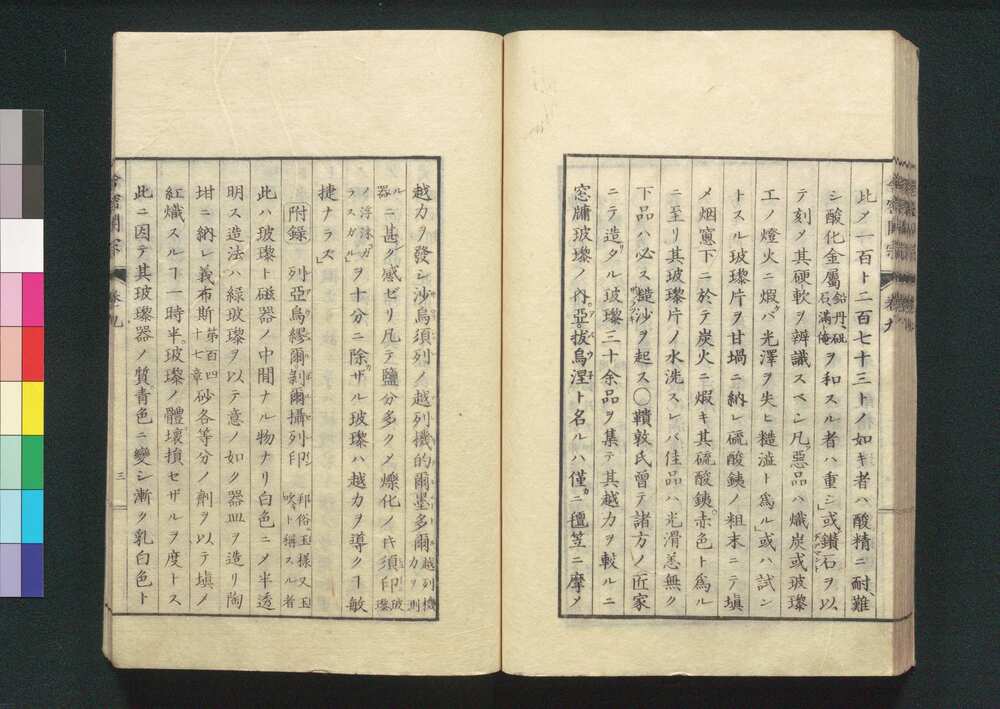 此ノ一百ト二百七十三トノ如キ者ハ酸精ニ耐難
シ酸化金屬鉛丹、砒石、滿俺ヲ和スル者ハ重シ」或鑽石ヲ以
テ刻メ其硬軟ヲ辨識スベシ凡惡品ハ熾炭或玻瓈
工ノ燈火ニ煆バ光澤ヲ失ヒ糙澁ト爲ル」或ハ試ン
トスル玻瓈片ヲ甘堝ニ納レ硫酸銕ノ粗末ニテ塡
メ烟窻下ニ於テ炭火ニ煆キ其硫酸銕赤色ト爲ル
ニ至リ其玻瓈片ノ水洗スレバ佳品ハ光滑恙無ク
下品ハ必ス糙沙ヲ起ス〇鞼敦氏曾テ諸方ノ匠家
ニテ造タル玻瓈三十余品ヲ集テ其越力ヲ較ルニ
窓牖玻瓈ノ內亞拔烏涅ト名ルハ僅ニ氊笠ニ摩メ
越力ヲ發シ沙烏須列ノ越列機的爾墨多爾越列機力ヲ測
ル器ニ甚ク感ゼリ凡テ鹽分多クメ爍化ノ時須印玻瓈
ノ浮沫ガラスガルヲ十分ニ除ザル玻瓈ハ越力ヲ導クヿ敏
捷ナラズ」
附錄 列亞烏繆爾剝爾攝列印邦俗玉樣又玉𠺕ト稱スル者
此ハ玻瓈ト磁器ノ中間ナル物ナリ白色ニメ半透
明ス造法ハ綠玻瓈ヲ以テ意ノ如ク器皿ヲ造リ陶
坩ニ納レ義布斯第百四十七章砂各等分ノ劑ヲ以テ塡メ
紅熾スルヿ一時半玻瓈ノ體壞損セザルヲ度トス
此ニ因テ其玻瓈器ノ質靑色ニ變シ漸ク乳白色ト
三